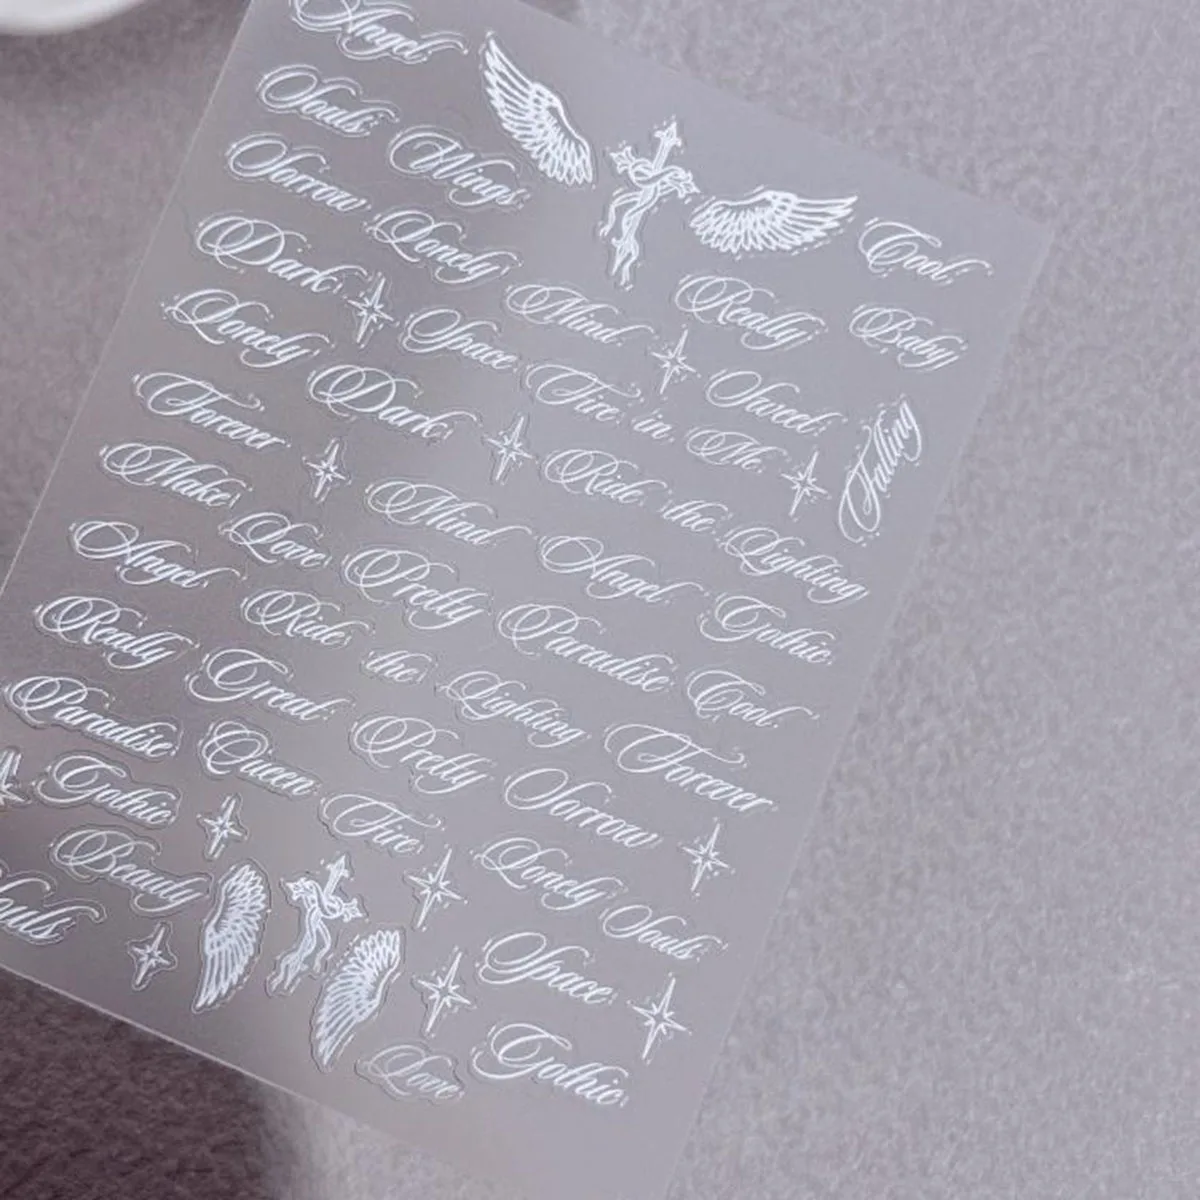 Angel
Souls Wings
Sorrow Lonely Cool
Dark Mind Really Baby
Lonely Space Fire in Me Sweet
Forever Dark Ride the Lighting Falling
Make Love Mind Angel Gothic
Angel Pretty Paradise Cool
Really Ride the Lighting Forever
Paradise Great Pretty Sorrow
Gothic Queen Fire Lonely Souls
Beauty Space
Souls Gothic
Love